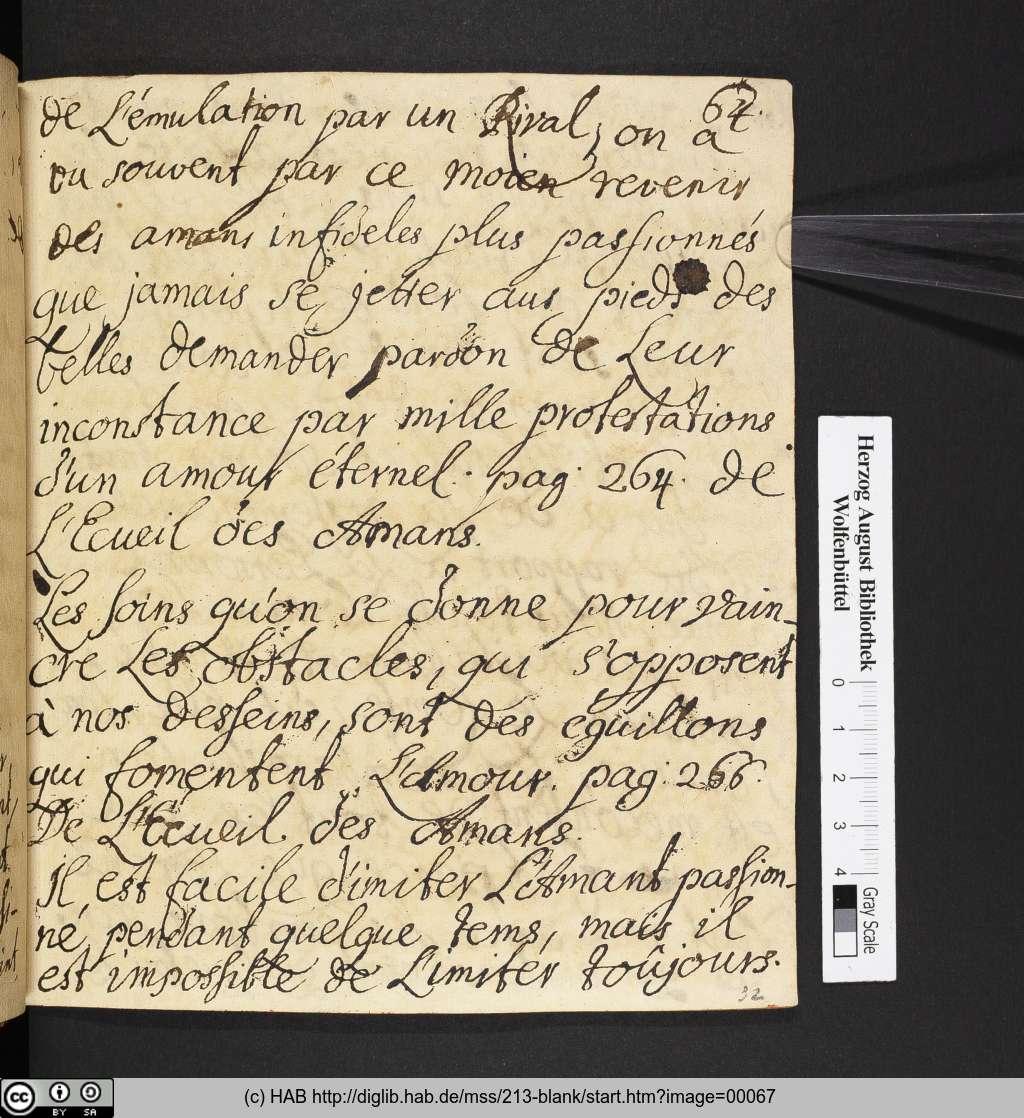 64.
de L'émulation par un Rival, on a
vu souvent par ce moien revenir
des amans infideles plus passionnés
que jamais se jetter aus pieds des
belles demander pardon de Leur
inconstance par mille protestations
d'un amour éternel. pag: 264. de
L'Ecueil des Amans.
Les soins qu'on se donne pour vain-
cre Les obstacles, qui s'opposent
à nos desseins, sont des éguillons
qui fomentent L'Amour. pag: 266.
De L'Ecueil des Amans.
Il est facile d'imiter L'Amant passion-
né, pendant quelque tems, mais il
est impossible de L'imiter toûjours.
32
Herzog August Bibliothek
Wolfenbüttel
0 1 2 3 4
Gray Scale
cc BY SA
(c) HAB http://diglib.hab.de/mss/213-blank/start.htm?image=00067